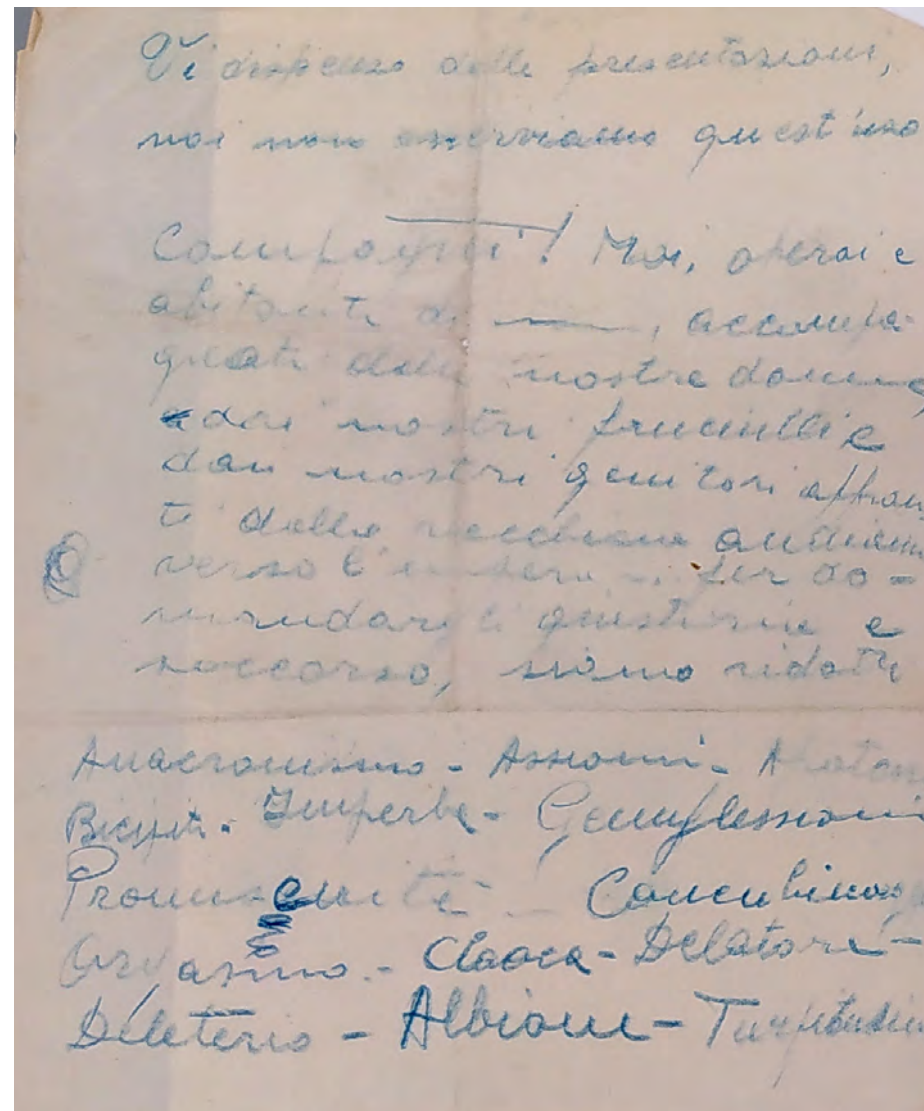 Vi dispenso dalle presentazioni,
noi non osserviamo quest'uso
Compagni! Noi, operai e
abitanti di ——, accompa-
gnati dalle nostre donne,
dai nostri fanciulli e
dai nostri genitori affran
ti dalla vecchiaia andiamo
verso l' per do=
mandargli giustizia e
soccorso, siamo ridotti
Anacronismo - Assiomi -
Bicipite - Imperbe - Genuflessioni
Promiscuità - Concubinag
Orgasmo - Cloaca - Delatori -
Deleterio - Albione - Turpitudin